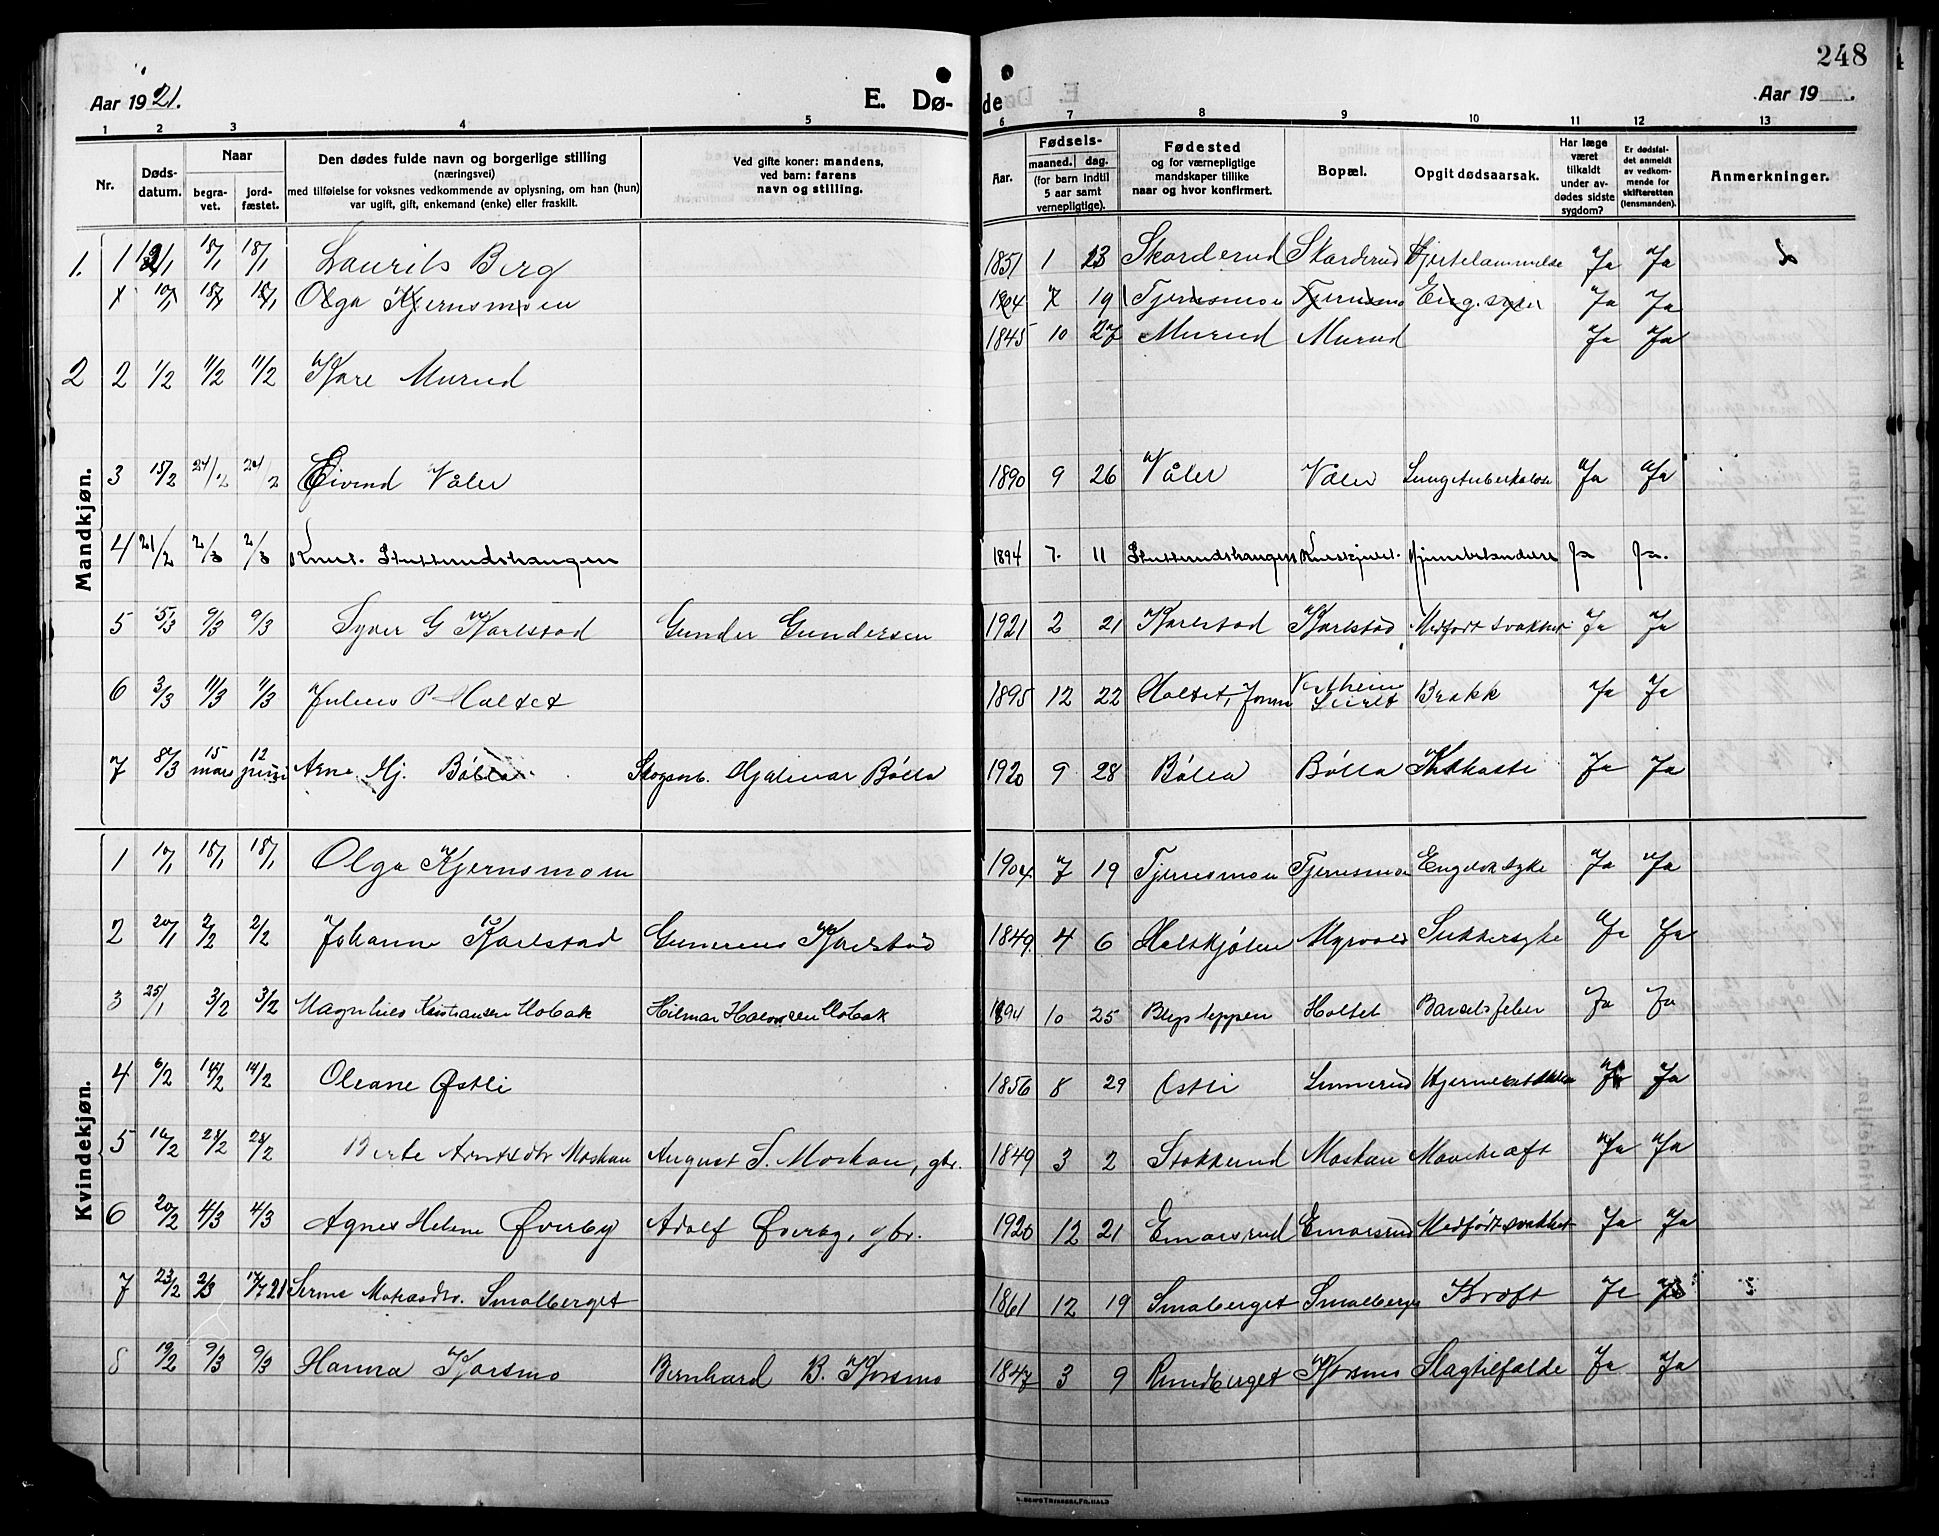 248
Aar 1921.
E. Dø-
de
Aar 19
1 2 3 4 5 6 7 8 9 10 11 12 13
Nr.
Døds-
datum.
Naar
begra-
vet.
jord-
fæstet.
Den dødes fulde navn og borgerlige stilling
(næringsvei)
med tilføielse for voksnes vedkommende av oplysning, om han (hun)
var ugift, gift, enkemand (enke) eller fraskilt.
Ved gifte koner: mandens,
ved barn: farens
navn og stilling.
Aar.
Fødsels-
maaned. dag.
(for barn indtil
5 aar samt
vernepligtige).
Fødested
og for værnepligtige
mandskaper tillike
naar og hvor konfirmert.
Bopæl.
Opgit dødsaarsak.
Har læge
været
tilkaldt
under av-
dødes sidste
sygdom?
Er dødsfal-
det anmeldt
av vedkom-
mende for
skifteretten
(lensmanden).
Anmerkninger.
Mandkjøn.
1. 1 18/1 18/1 Laurits Berg 1851 1 23 Skarderud Skarderud Hjertelammelse Ja Ja
10/1 18/1 18/1 Olga Kjernsmoen 1904 7 19 Tjernsmoen Tjernsmo Eng. syke Ja Ja
1845 10 27 Murud Murud Ja Ja
2 2 1/2 11/2 11/2 Kåre Murud
3 15/2 24/2 24/2 Eivind Våler 1890 9 26 Våler Våler Lungetuberkulose Ja Ja
4 21/2 2/3 2/3 Knut Stutterudshaugen 1894 7. 11 Stutterudshaugen Ja Ja.
5 5/3 9/3 9/3 Syver G Karlstad Gunder Gundersen 1921 2 21 Karlstad Karlstad Medfødt svakhet Ja Ja
6 3/3 11/3 11/3 Julius P Holtet 1895 12 22 Holtet, Brokk Ja Ja
7 8/3 15 mars 12 juni Arne Hj. Bølla Skogsarb. Hjalmar Bølla 1920 9 28 Bølla Bølla Kikhoste Ja Ja
Kvindekjøn.
1 10/1 18/1 18/1 Olga Kjernsmoen 1904 7 19 Tjernsmoen Tjernsmoe Engelsk syke Ja Ja
2 20/1 2/2 2/2 Johanne Karlstad Gunerius Karlstad 1849 4 6 Halskjølen Myrvold Sukkersyke Ja Ja
3 25/1 3/2 3/2 Magnhild Kristiansen Mobak Hilmar Halvorsen Mobak 1894 10 25 Holtet Barselsfeber Ja Ja
4 6/2 14/2 14/2 Oleane Østli 1856 8 29 Østli Sunnerud Ja Ja
5 16/2 28/2 28/2 Berte Arntsdtr Moskau August S. Moskau, gbr. 1849 3 2 Stokkerud Moskau Mavekræft Ja Ja
6 20/2 4/3 4/3 Agnes Helene Øverby Adolf Øverby, gbr. 1920 12 21 Emarsrud Emarsrud Medfødt svakhet Ja Ja
7 23/2 2/3 17/7 21 Serine Matiasdtr. Smalberget 1861 12 19 Smalberget Smalberget Kræft Ja Ja
8 19/2 9/3 9/3 Hanna Kjorsmo Bernhard B. Kjorsmo 1847 3 9 Rundberget Kjorsmo Slagtilfælde Ja Ja